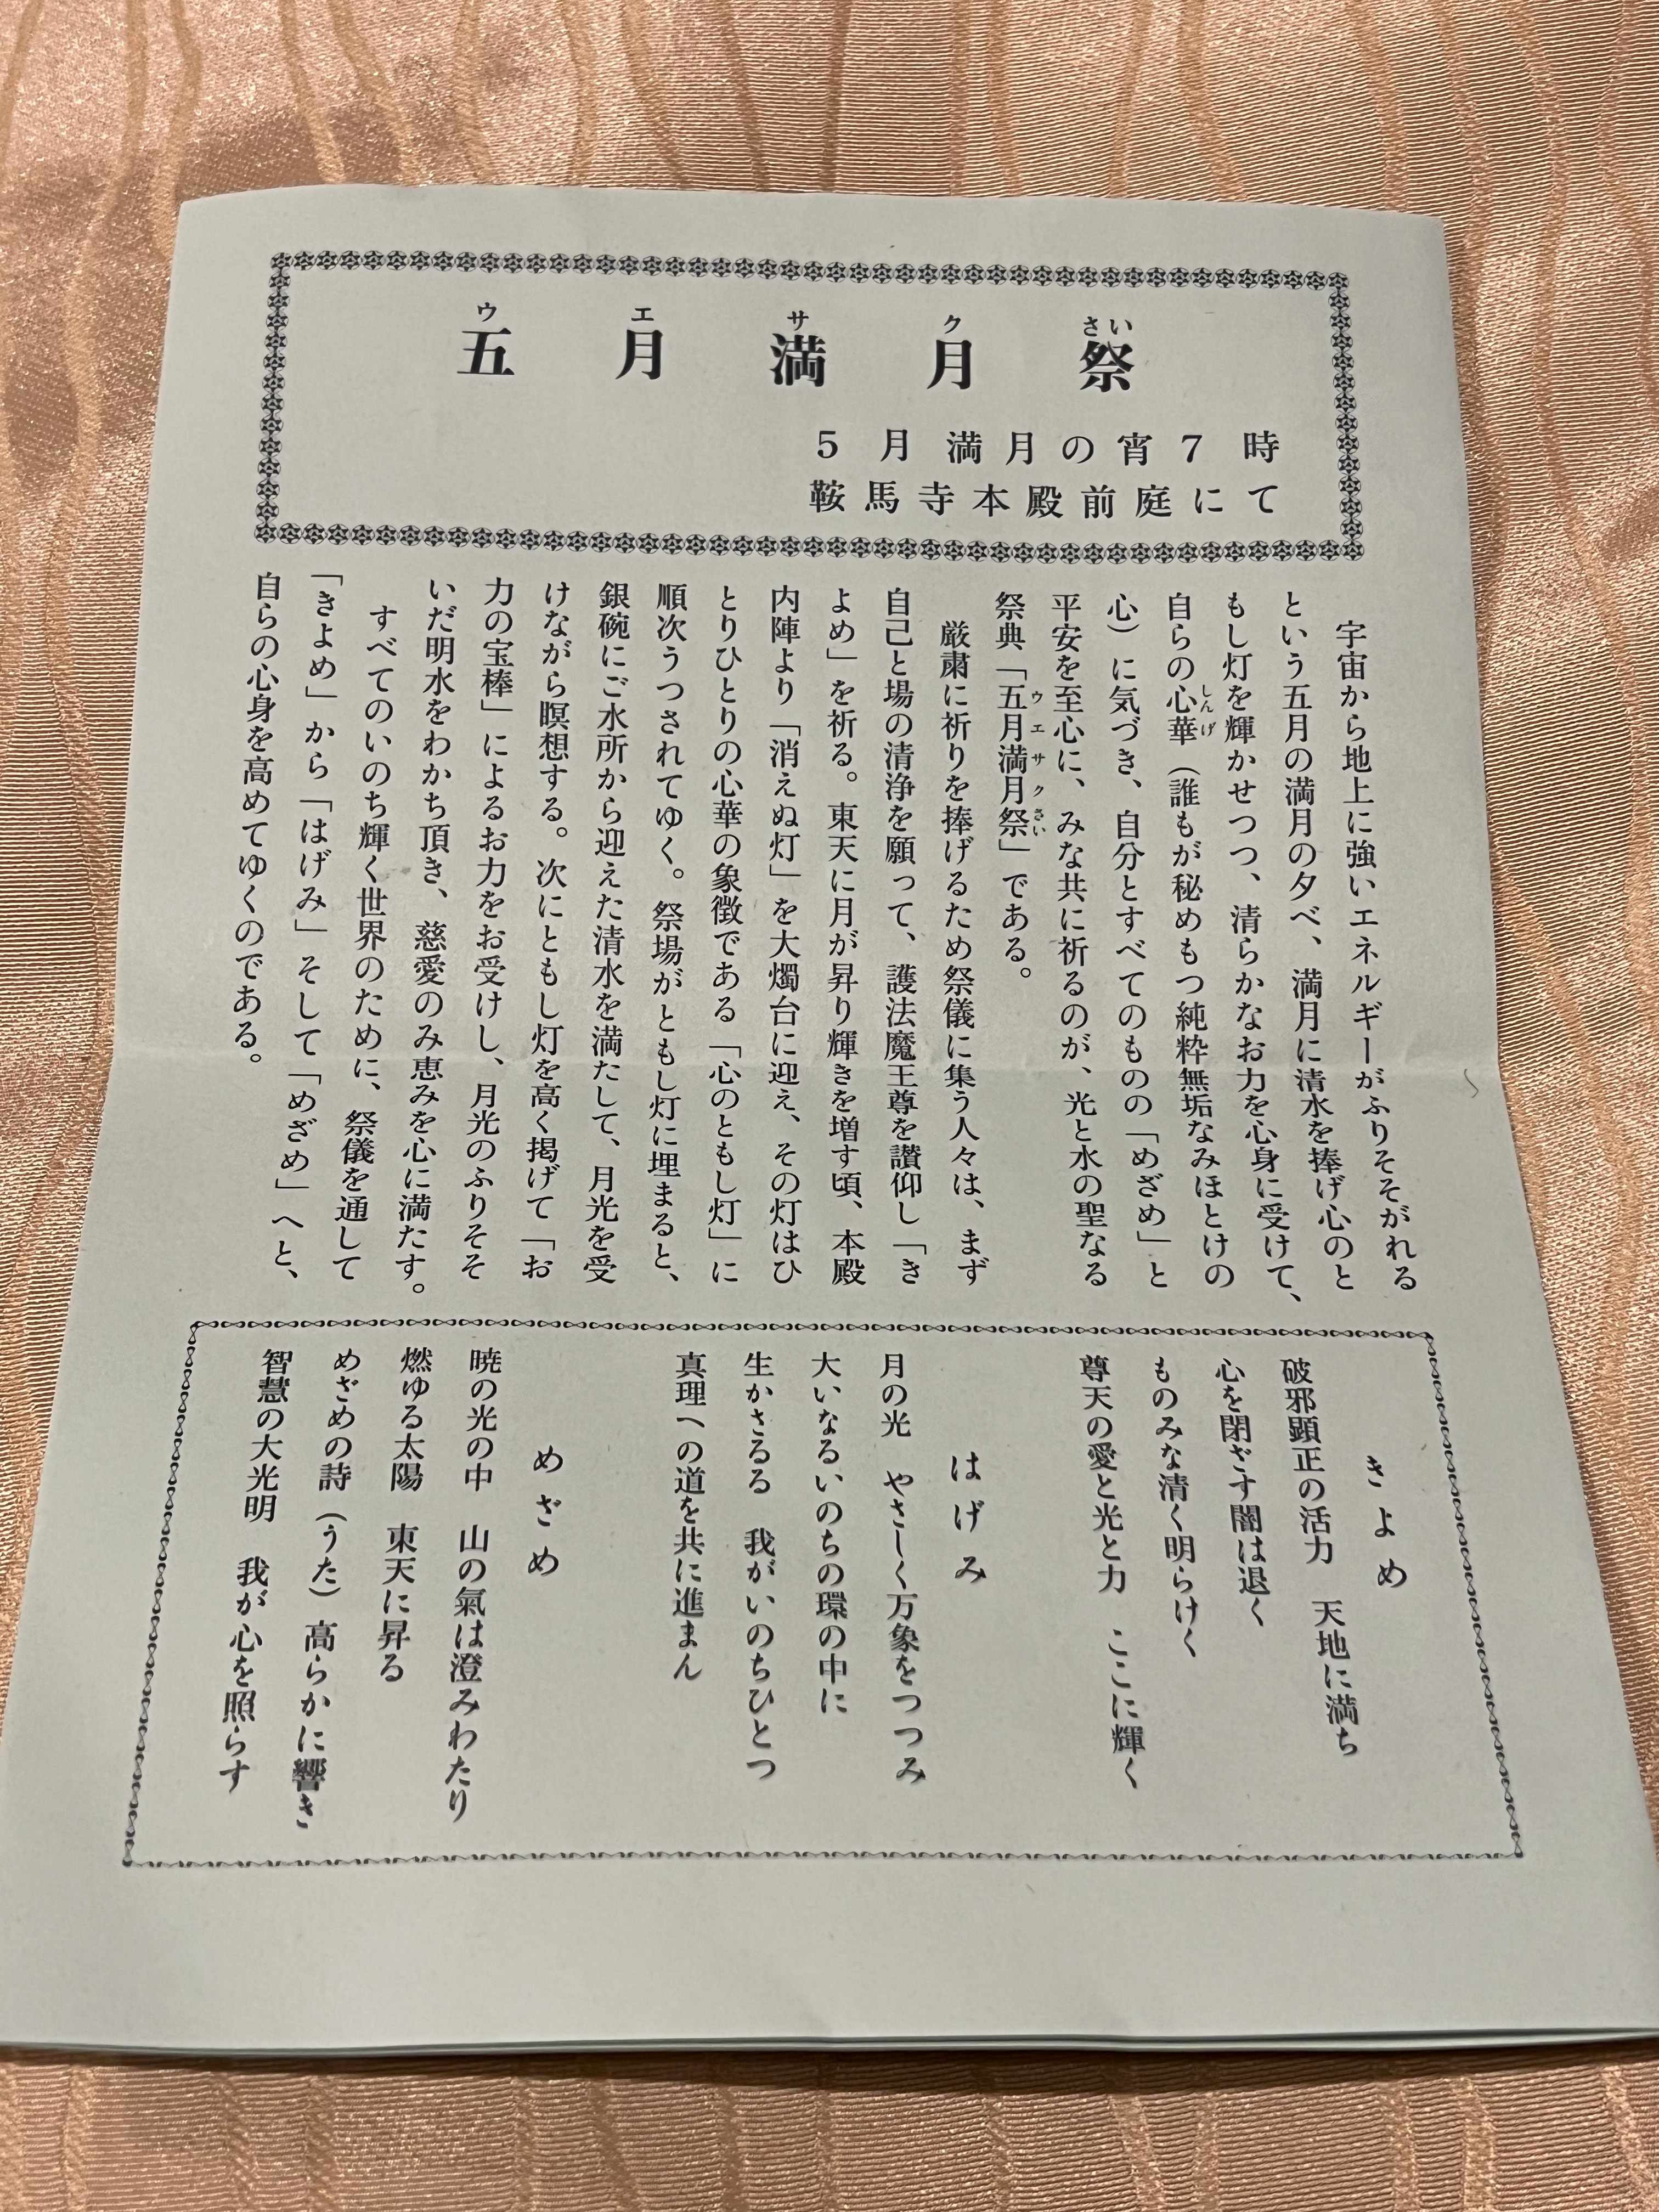 五月満月祭
ウエサクさい
5月満月の宵7時
鞍馬寺本殿前庭にて
宇宙から地上に強いエネルギーがふりそそがれる
という五月の満月の夕べ、満月に清水を捧げ心のと
もし灯を輝かせつつ、清らかなお力を心身に受けて、
自らの心華（誰もが秘めもつ純粋無垢なみほとけの
しんげ
心）に気づき、自分とすべてのものの「めざめ」と
平安を至心に、みな共に祈るのが、光と水の聖なる
祭典「五月満月祭」である。
ウエサクさい
厳粛に祈りを捧げるため祭儀に集う人々は、まず
自己と場の清浄を願って、護法魔王尊を讃仰し「き
よめ」を祈る。東天に月が昇り輝きを増す頃、本殿
内陣より「消えぬ灯」を大燭台に迎え、その灯はひ
とりひとりの心華の象徴である「心のともし灯」に
順次うつされてゆく。祭場がともし灯に埋まると、
銀碗にご水所から迎えた清水を満たして、月光を受
けながら瞑想する。次にともし灯を高く掲げて「お
力の宝棒」によるお力をお受けし、月光のふりそそ
いだ明水をわかち頂き、慈愛のみ恵みを心に満たす。
すべてのいのち輝く世界のために、祭儀を通して
「きよめ」から「はげみ」そして「めざめ」へと、
自らの心身を高めてゆくのである。
きよめ
破邪顕正の活力　天地に満ち
心を閉ざす闇は退く
ものみな清く明らけく
尊天の愛と光と力　ここに輝く
はげみ
月の光　やさしく万象をつつみ
大いなるいのちの環の中に
生かさるる　我がいのちひとつ
真理への道を共に進まん
めざめ
暁の光の中　山の氣は澄みわたり
燃ゆる太陽　東天に昇る
めざめの詩（うた）高らかに響き
智慧の大光明　我が心を照らす